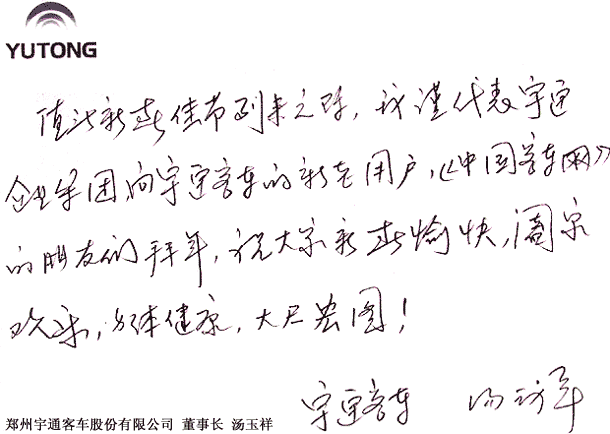 YUTONG
值此新春佳节到来之际，我谨代表宇通
企业集团向宇通客车的新老用户，《中国客车网》
的朋友们拜年，祝大家新春愉快，阖家
欢乐，身体健康，大展宏图！
宇通客车 汤玉祥
郑州宇通客车股份有限公司 董事长 汤玉祥